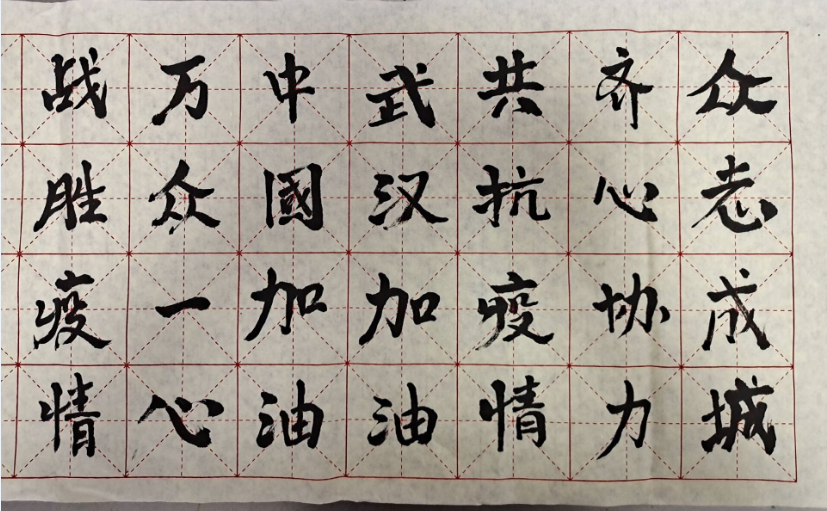 众志成城
齐心协力
共抗疫情
武汉加油
中國加油
万众一心
战胜疫情